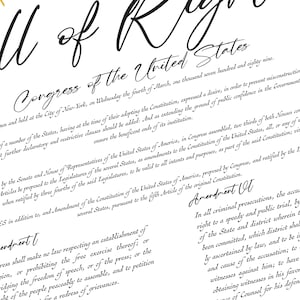 ll of Righ
Congress of the United States
n and held at the City of New York, on Wednesday the fourth of March, one thousand seven hundred and eighty nine.
of a number of the States, having at the time of their adopting the Constitution, expressed a desire, in order to prevent misconstruction
further declaratory and restrictive clauses should be added: And as extending the ground of public confidence in the Government
ensure the beneficent ends of its institution.
by the Senate and House of Representatives of the United States of America, in Congress assembled, two thirds of both Houses
Articles be proposed to the Legislatures of the several States, as amendments to the Constitution of the United States, all, or any of
when ratified by three fourths of the said Legislatures, to be valid to all intents and purposes, as part of the said Constitution;
ES in addition to, and Amendment of the Constitution of the United States of America, proposed by Congress, and ratified by the
several States, pursuant to the fifth Article of the original Constitution.
endment I
ress shall make no law respecting an establishment of
ion, or prohibiting the free exercise thereof; or
idging the freedom of speech, or of the press; or the
ht of the people peaceably to assemble, and to petition
for a redress of grievances.
Amendment VI
In all criminal prosecutions, the accu
right to a speedy and public trial, by
of the State and district wherein
been committed, which district shal
by ascertained by law, and to be i
and cause of the accusation;
witnesses against him; to have
obtaining witnesses in his
of Counsel for his defen